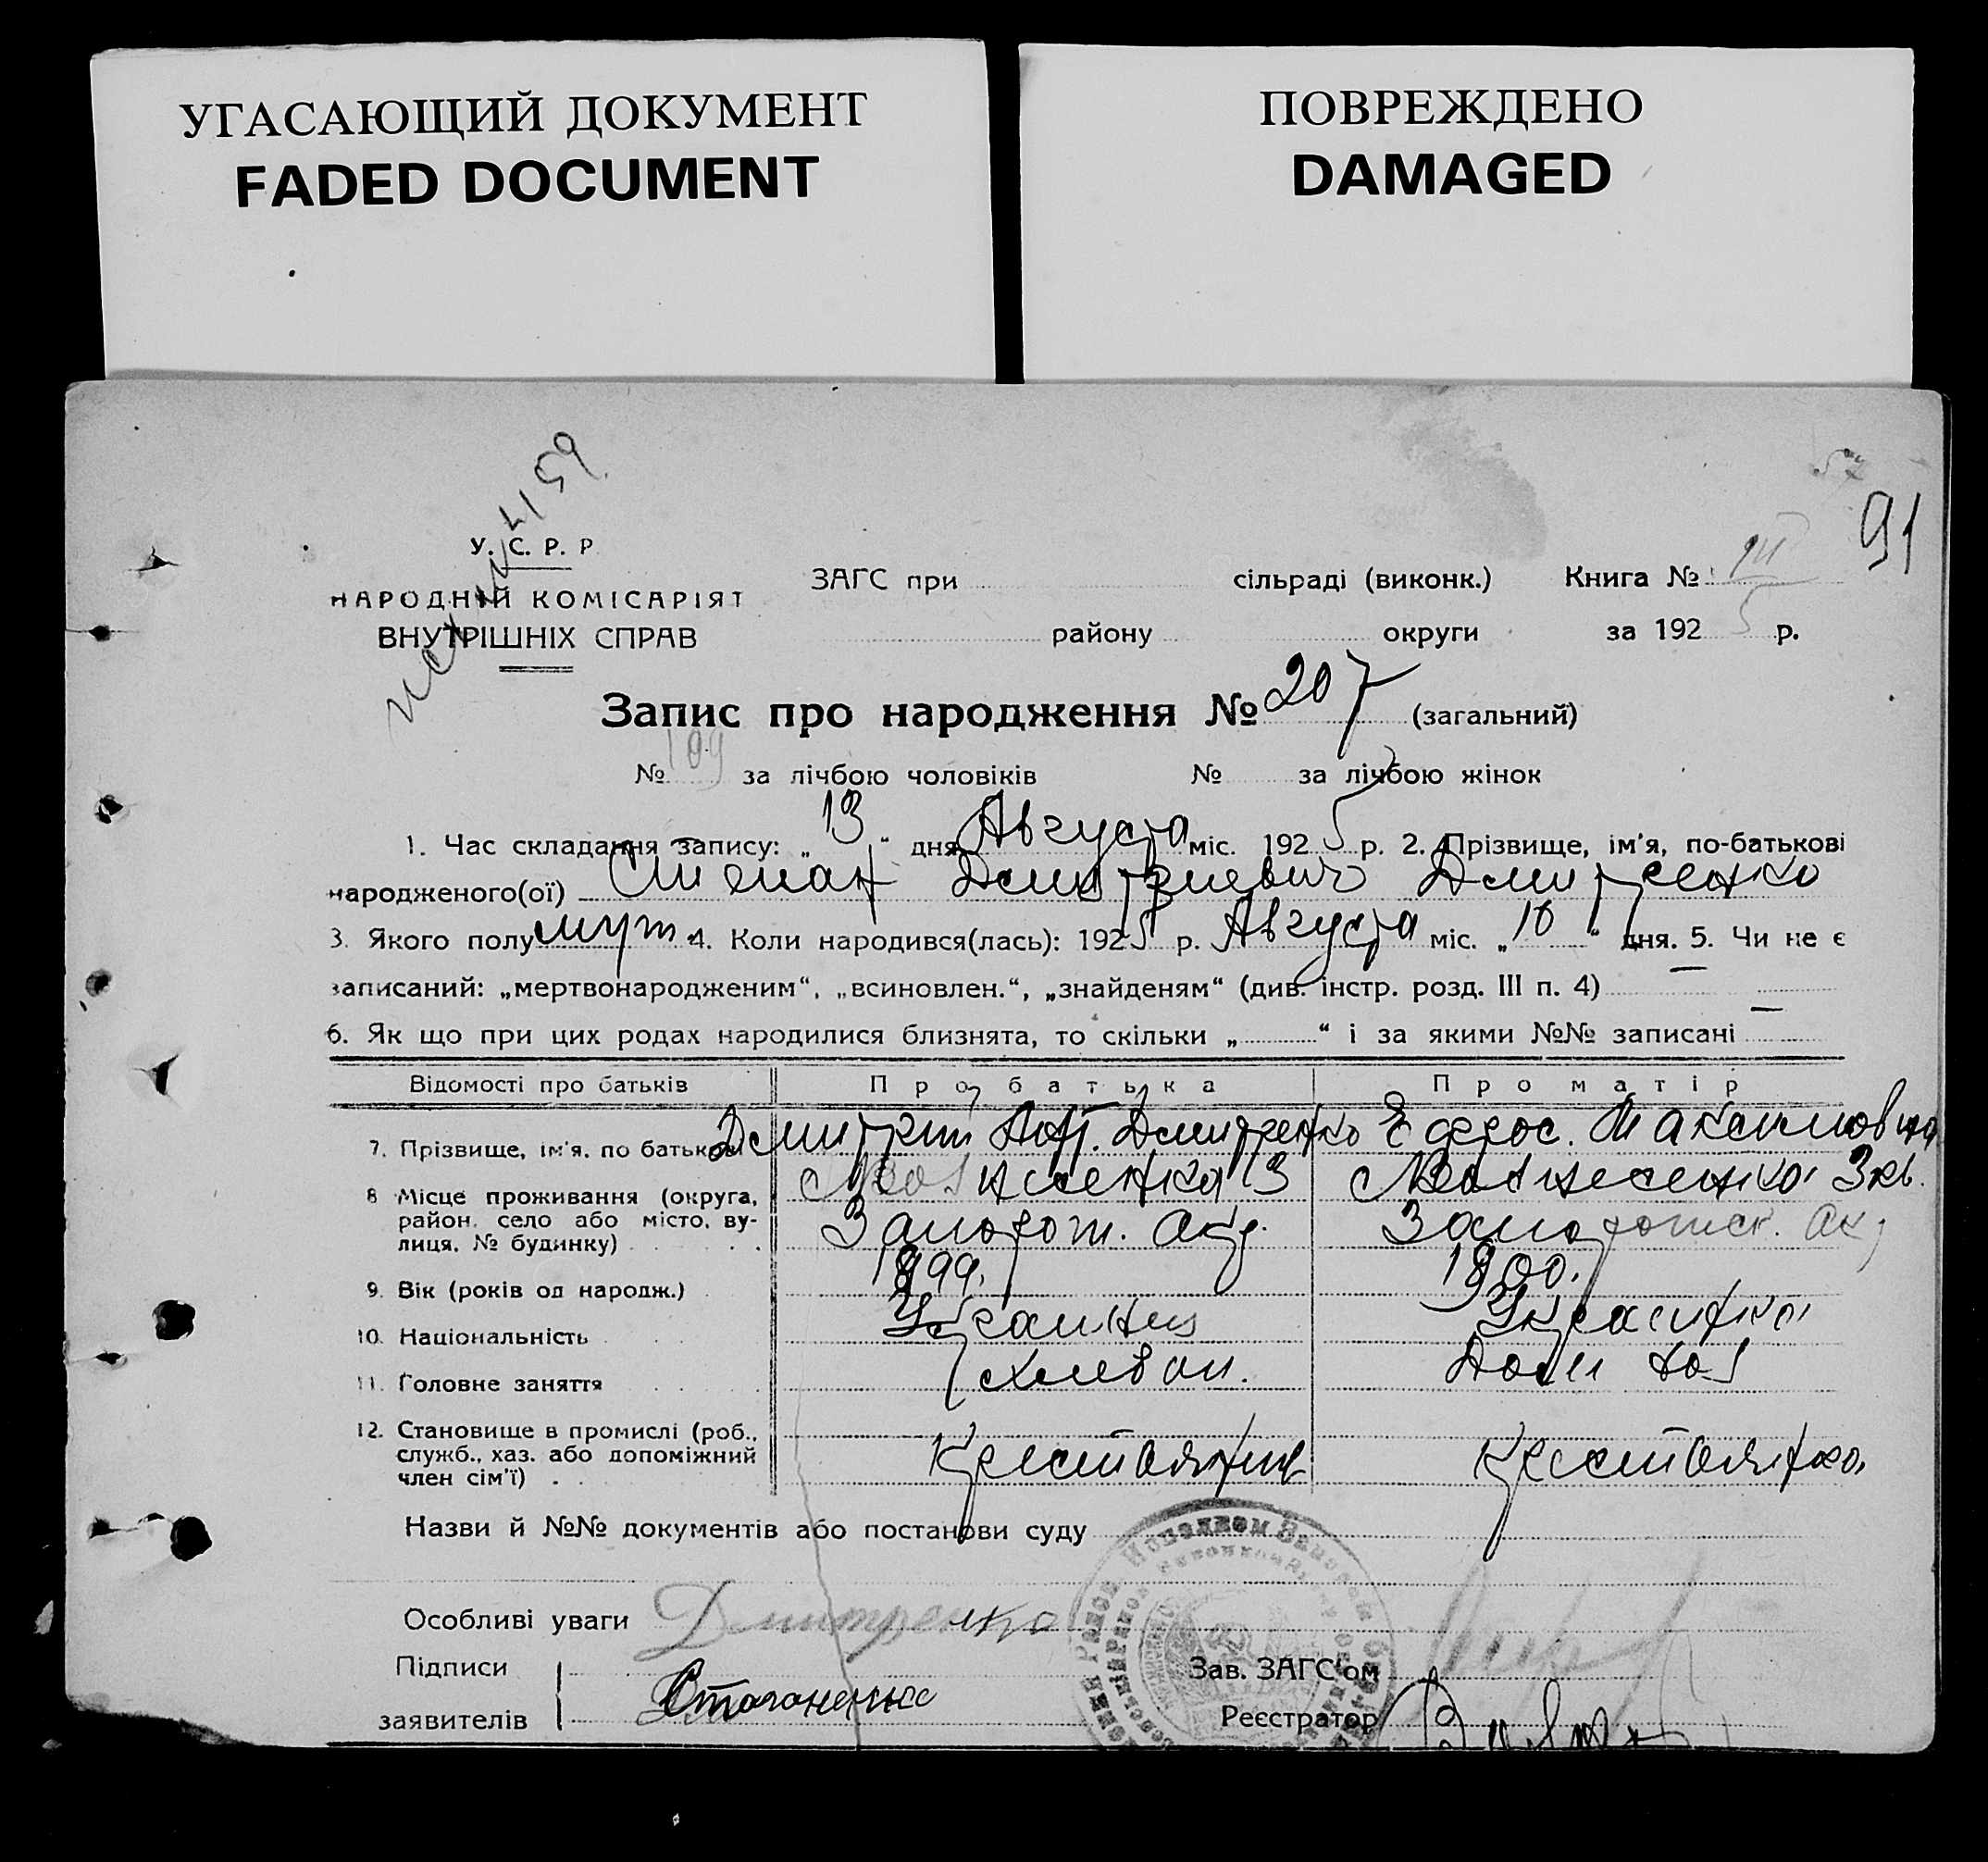 УГАСАЮЩИЙ ДОКУМЕНТ
FADED DOCUMENT
ПОВРЕЖДЕНО
DAMAGED
91
У. С. Р. Р.
НАРОДНІЙ КОМІСАРІЯТ
ВНУТРІШНІХ СПРАВ
ЗАГС при сільраді (виконк.) Книга № III
району округи за 192 5 р.
Запис про народження № 207 (загальний)
№ 109 за лічбою чоловіків № за лічбою жінок
1. Час складання запису: „ 13 “ дня Августа міс. 192 5 р. 2. Прізвище, ім'я, по-батькові
народженого(ої) Степан Дмитриевич Дмитренко
3. Якого полу муж. 4. Коли народився(лась): 192 5 р. Августа міс. „ 10 “ дня. 5. Чи не є
записаний: „мертвонародженим“, „всиновлен.“, „знайденям“ (див. інстр. розд. III п. 4) —
6. Як що при цих родах народилися близнята, то скільки „ “ і за якими №№ записані —
Відомості про батьків Про батька Про матір
7. Прізвище, ім'я, по батькові Дмитрий Дмитренко Ефрос. Максимовна
8 Місце проживання (округа,
район, село або місто, ву-
лиця, № будинку) Запорож. Окр. Запорожск. Ок
9. Вік (років од народж.) 1899. 1900.
10. Національність Украинец Украинка
11. Головне заняття хлебоп. Дом хоз
12. Становище в промислі (роб.,
служб., хаз. або допоміжний
член сім'ї) Крестьянин Крестьянка
Назви й №№ документів або постанови суду
Особливі уваги Дмитренко
Підписи
заявителів
Зав. ЗАГС'ом
Реєстратор